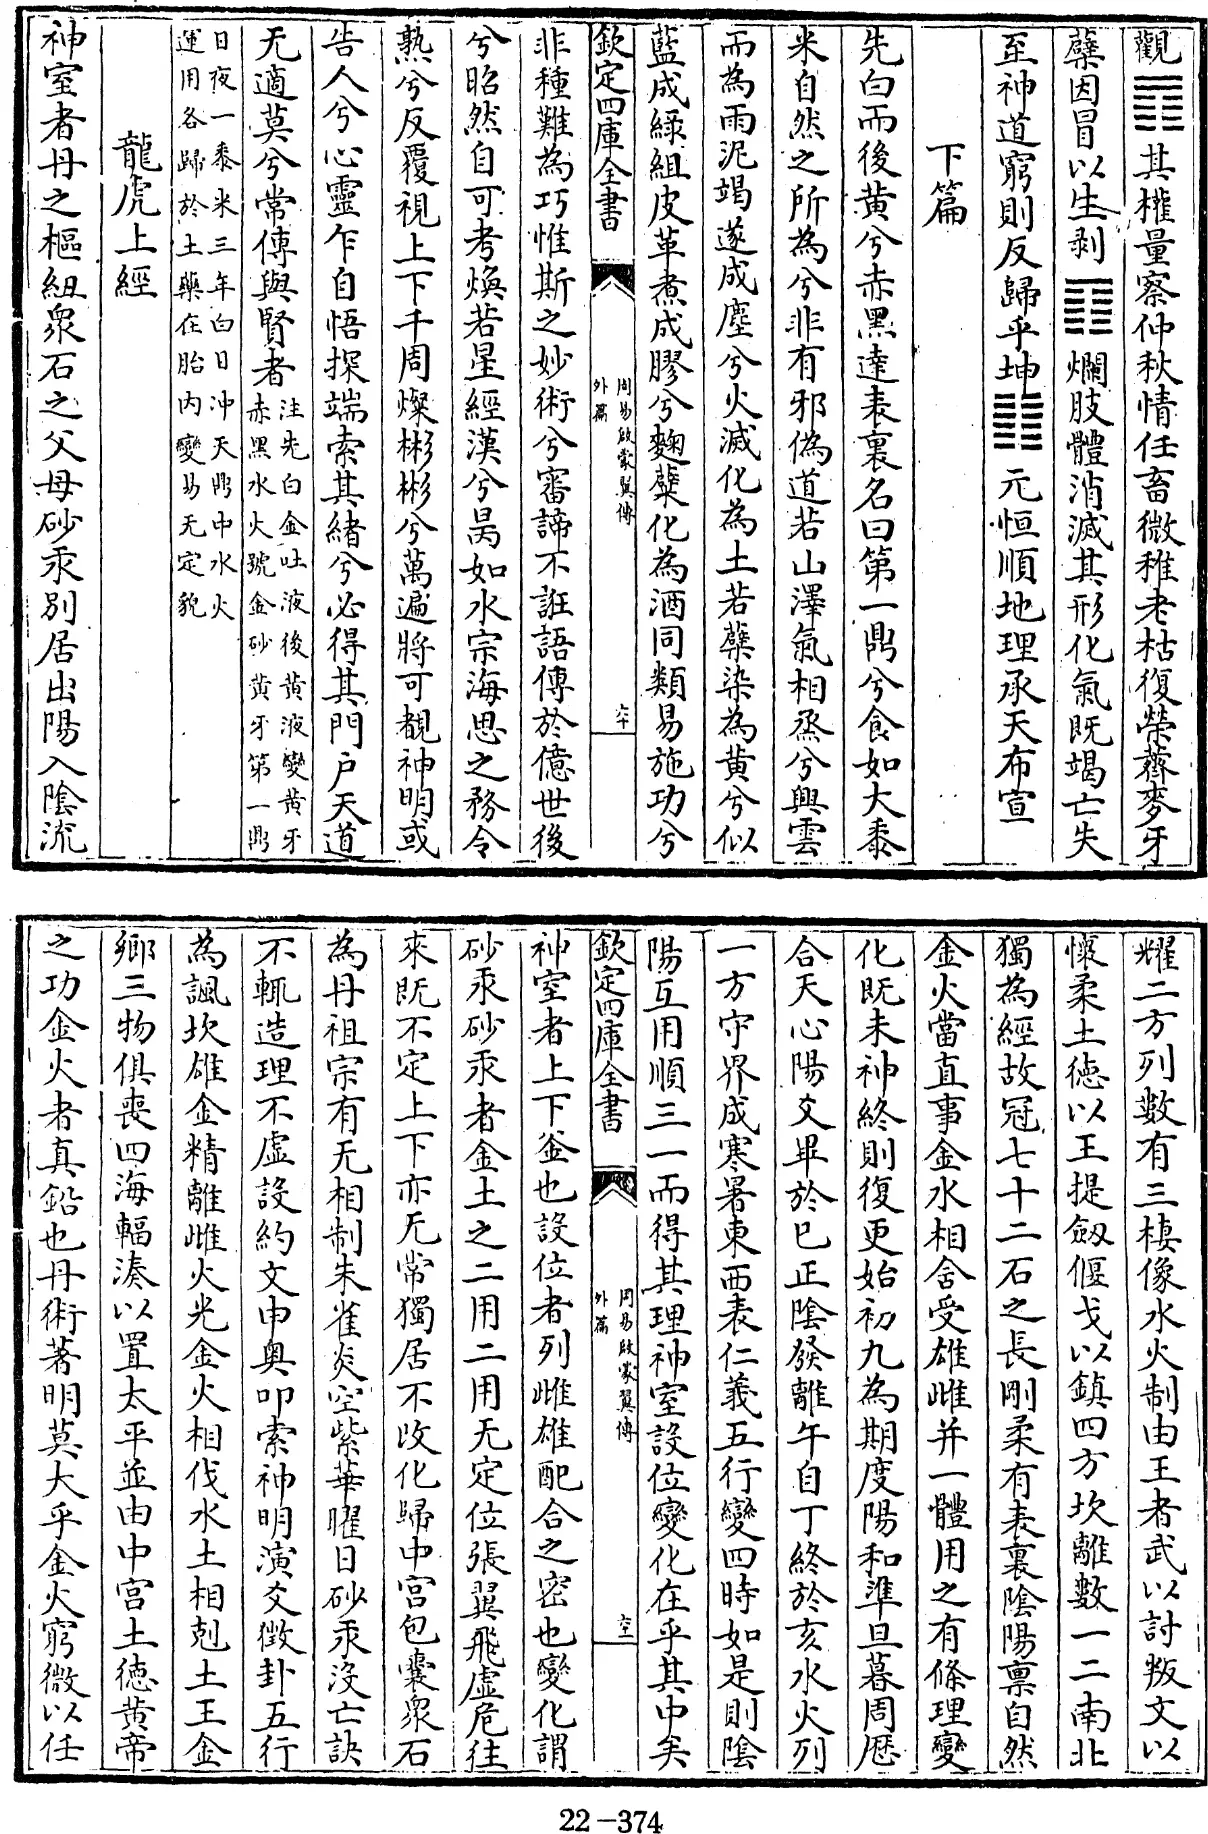 觀䷓其權量察仲秋情任畜微稚老枯復榮薺麥牙
蘖因冒以生剥䷖爛肢體消滅其形化氣既竭亡失
至神道窮則反歸乎坤䷁元恒順地理承天布宣
下篇
先白而後黄兮赤黑達表裏名曰第一鼎兮食如大黍
米自然之所為兮非有邪偽道若山澤氣相烝兮興雲
而為雨泥竭遂成塵兮火滅化為土若蘖染為黄兮似
藍成緑組皮革煮成膠兮麴蘖化為酒同類易施功兮
欽定四庫全書
周易啟蒙翼傳
外篇
六十
非種難為巧惟斯之妙術兮審諦不誑語傳於億世後
兮昭然自可考煥若星經漢兮昺如水宗海思之務令
熟兮反覆視上下千周燦彬彬兮萬遍將可覩神明或
告人兮心靈乍自悟探端索其緒兮必得其門户天道
无適莫兮常傳與賢者
注先白金吐液後黄液變黄牙
赤黑水火號金砂黄牙第一鼎
日夜一黍米三年白日沖天鼎中水火
運用各歸於土藥在胎内變易无定貌
龍虎上經
神室者丹之樞紐衆石之父母砂汞别居出陽入陰流
耀二方列數有三棲像水火制由王者武以討叛文以
懷柔土徳以王提劔偃戈以鎮四方坎離數一二南北
獨為經故冠七十二石之長剛柔有表裏陰陽禀自然
金火當直事金水相含受雄雌并一體用之有條理變
化既未神終則復更始初九為期度陽和準旦暮周歴
合天心陽爻畢於巳正陰發離午自丁終於亥水火列
一方守界成寒暑東西表仁義五行變四時如是則陰
陽互用順三一而得其理神室設位變化在乎其中矣
欽定四庫全書
周易啟蒙翼傳
外篇
六十一
神室者上下釜也設位者列雌雄配合之密也變化謂
砂汞砂汞者金土之二用二用无定位張翼飛虚危往
來既不定上下亦无常獨居不改化歸中宫包囊衆石
為丹祖宗有无相制朱雀炎空紫華曜日砂汞沒亡訣
不輒造理不虚設約文申奥叩索神明演爻徴卦五行
為諷坎雄金精離雌火光金火相伐水土相剋土王金
鄉三物俱喪四海輻湊以置太平並由中宫土徳黄帝
之功金火者真鉛也丹術著明莫大乎金火窮微以任
22-374